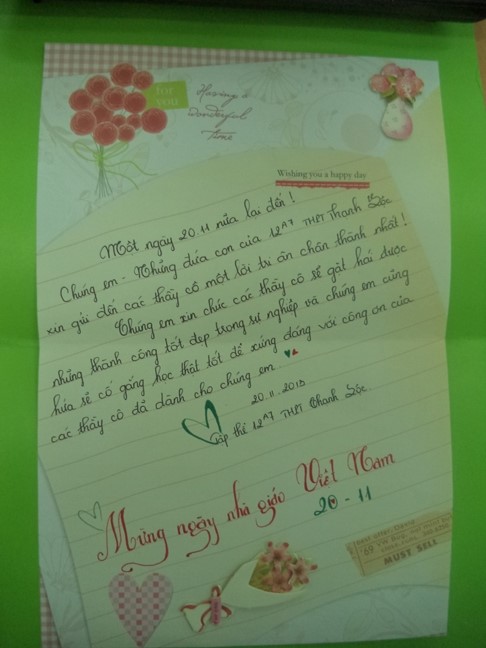 for you
Having a
wonderful
Time
Wishing you a happy day
Một ngày 20.11 nữa lại đến!
Chúng em - Những đứa con của 12A7 THPT Thanh Lộc
xin gửi đến các thầy cô một lời tri ân chân thành nhất!
Chúng em xin chúc các thầy cô sẽ gặt hái được
những thành công tốt đẹp trong sự nghiệp và chúng em cũng
hứa sẽ cố gắng học thật tốt để xứng đáng với công ơn của
các thầy cô đã dành cho chúng em
20.11.2013
Tập thể 12A7 THPT Thanh Lộc
Mừng ngày nhà giáo Việt Nam
20 - 11
MUST SELL